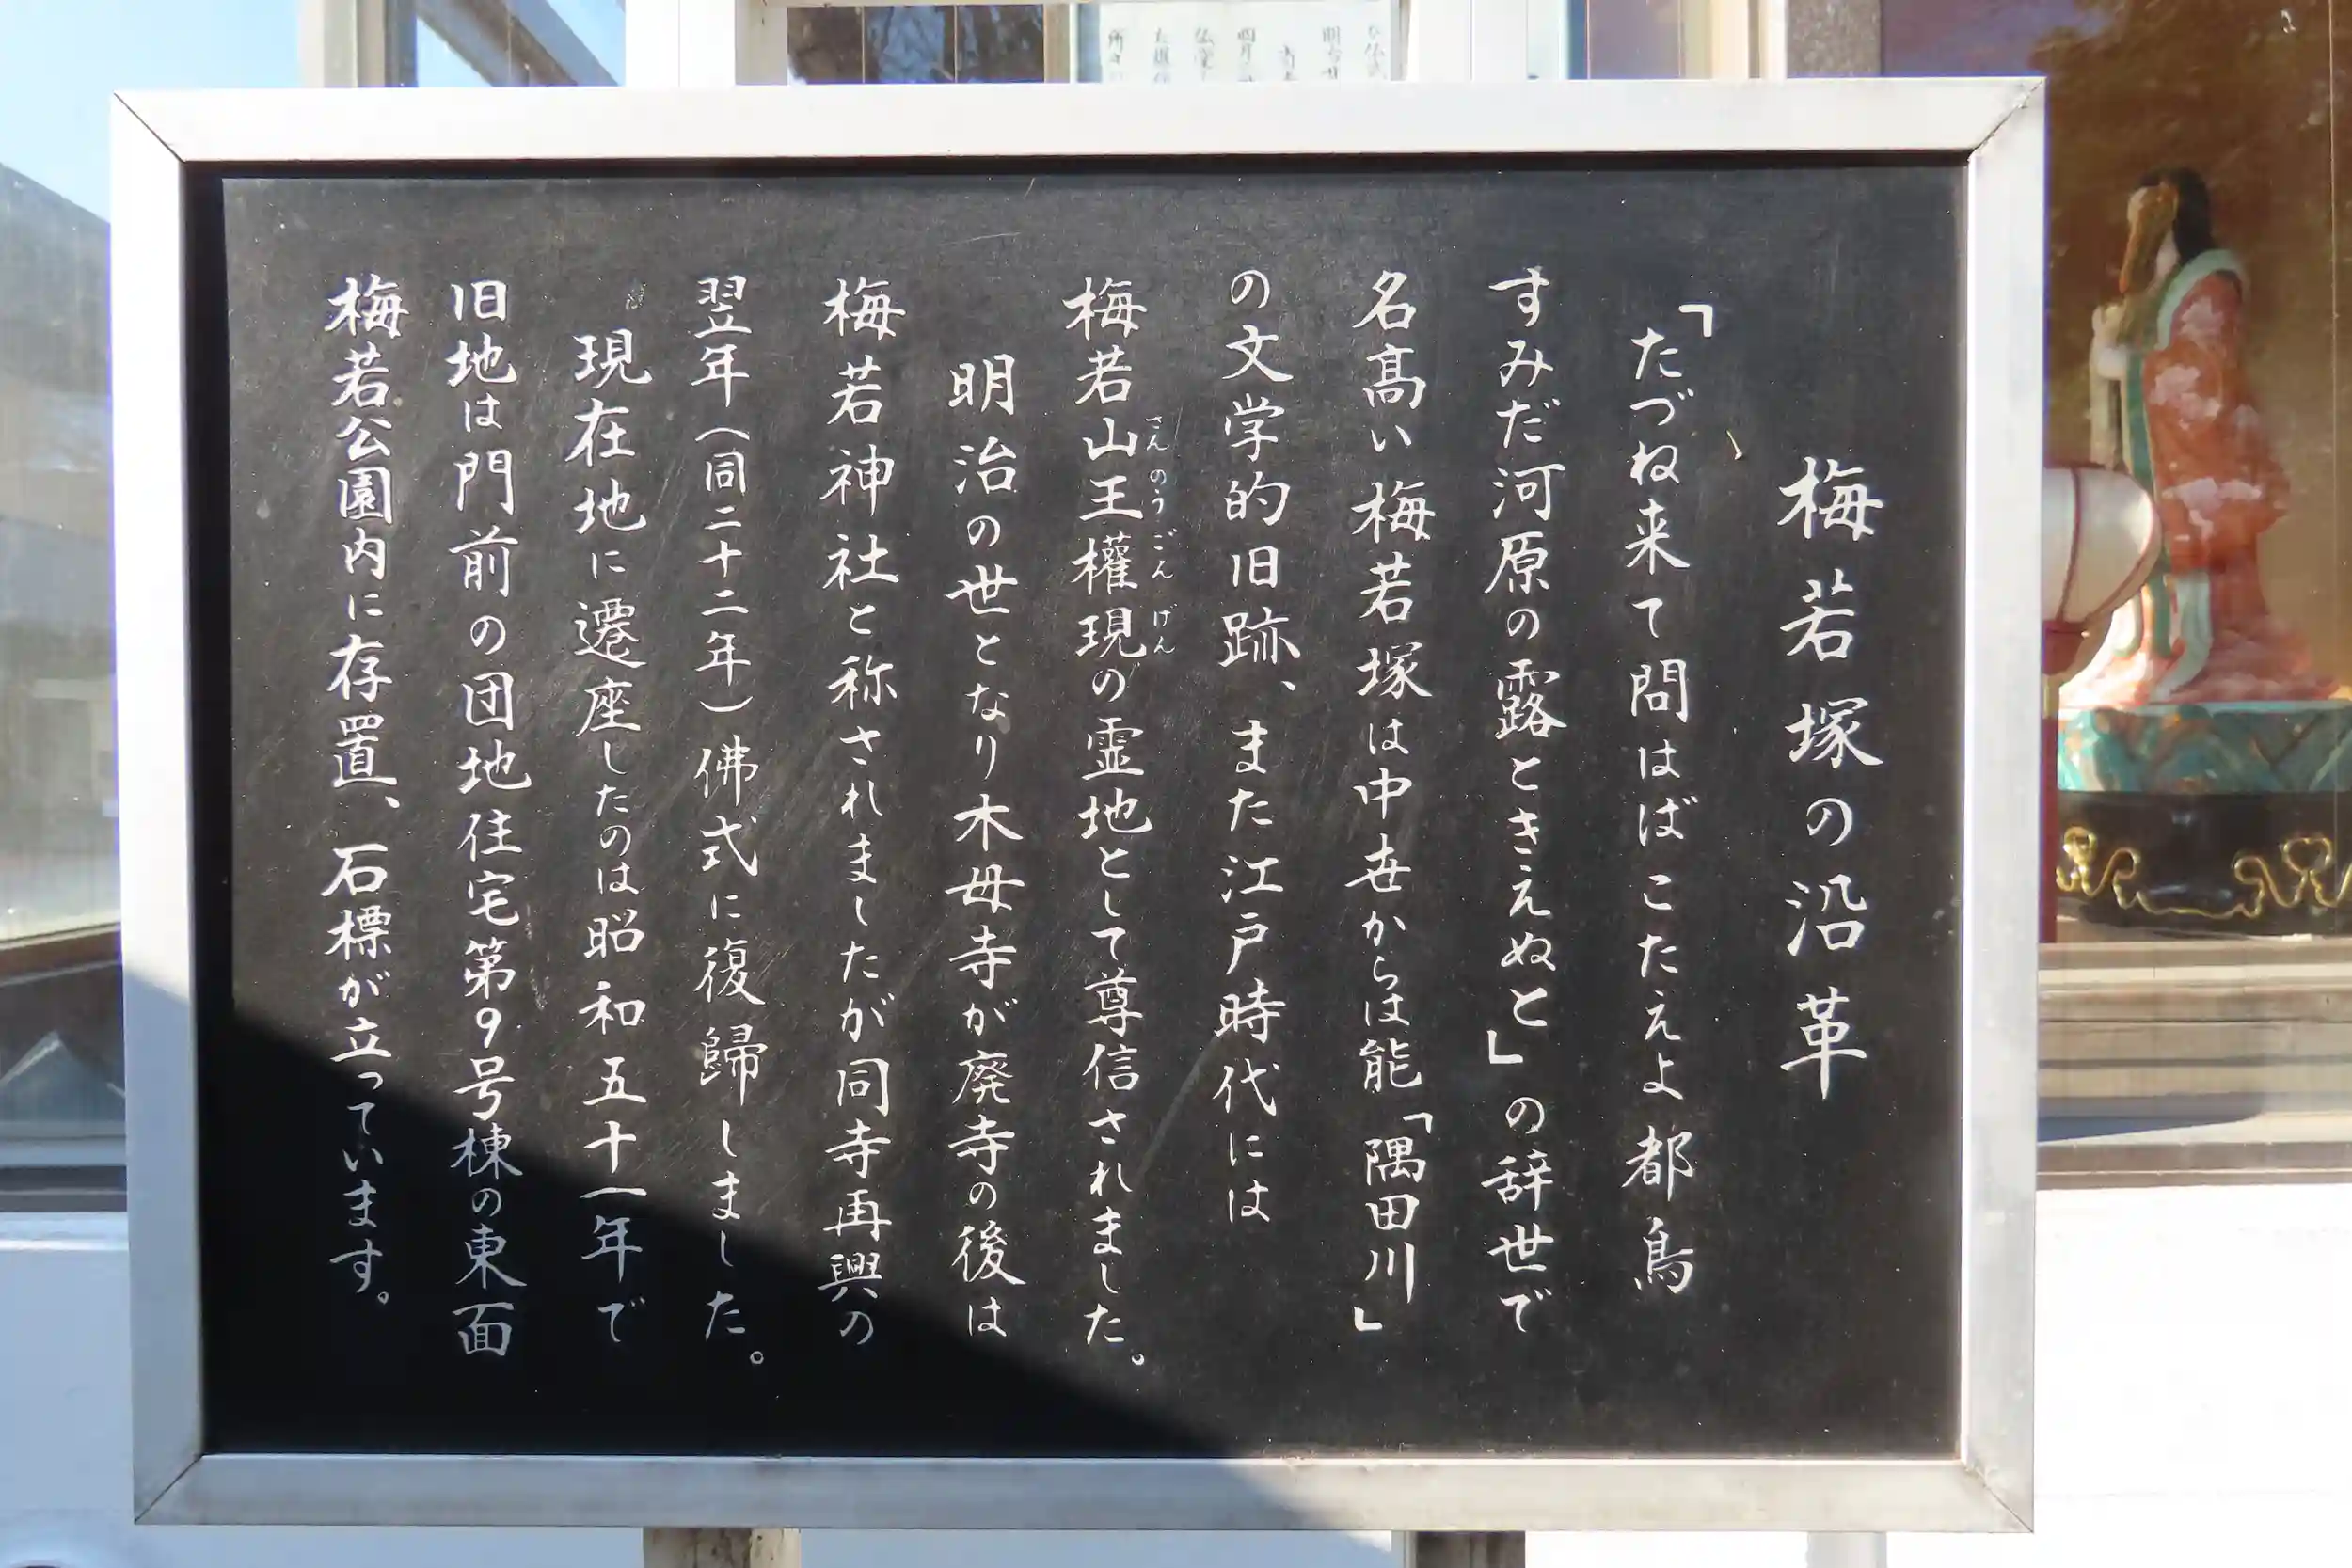 梅若塚の沿革
「たづね来て問はばこたえよ都鳥
すみだ河原の露ときえぬと」の辞世で
名髙い梅若塚は中世からは能「隅田川」
の文学的旧跡、また江戸時代には
梅若山王権現の霊地として尊信されました。
さんのうごんげん
明治の世となり木母寺が廃寺の後は
梅若神社と称されましたが同寺再興の
翌年（同二十二年）佛式に復歸しました。
現在地に遷座したのは昭和五十一年で
旧地は門前の団地住宅第9号棟の東面
梅若公園内に存置、石標が立っています。